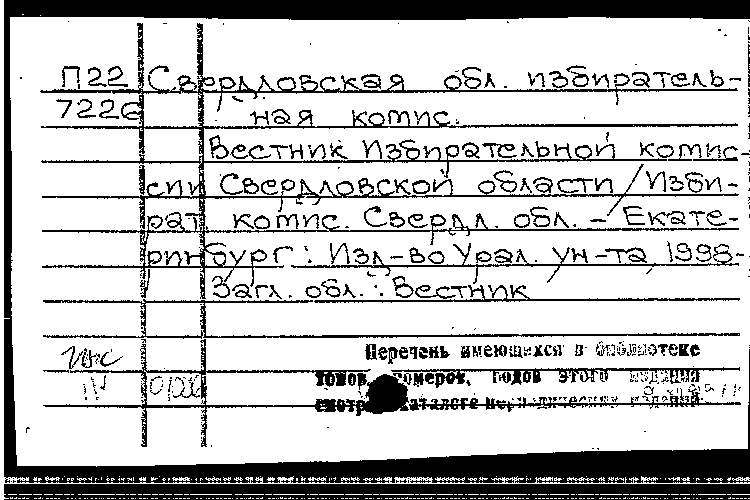 П22 Свердловская обл. избиратель-
7226 ная комис.
Вестник Избирательной комис-
сии Свердловской области / Изби-
рат. комис. Свердл. обл. – Екате-
ринбург: Изд-во Урал. ун-та, 1998-
Загл. обл.: Вестник
Перечень имеющихся в библиотеке
томов, номеров, годов этого издания
смотри каталоге периодических изданий